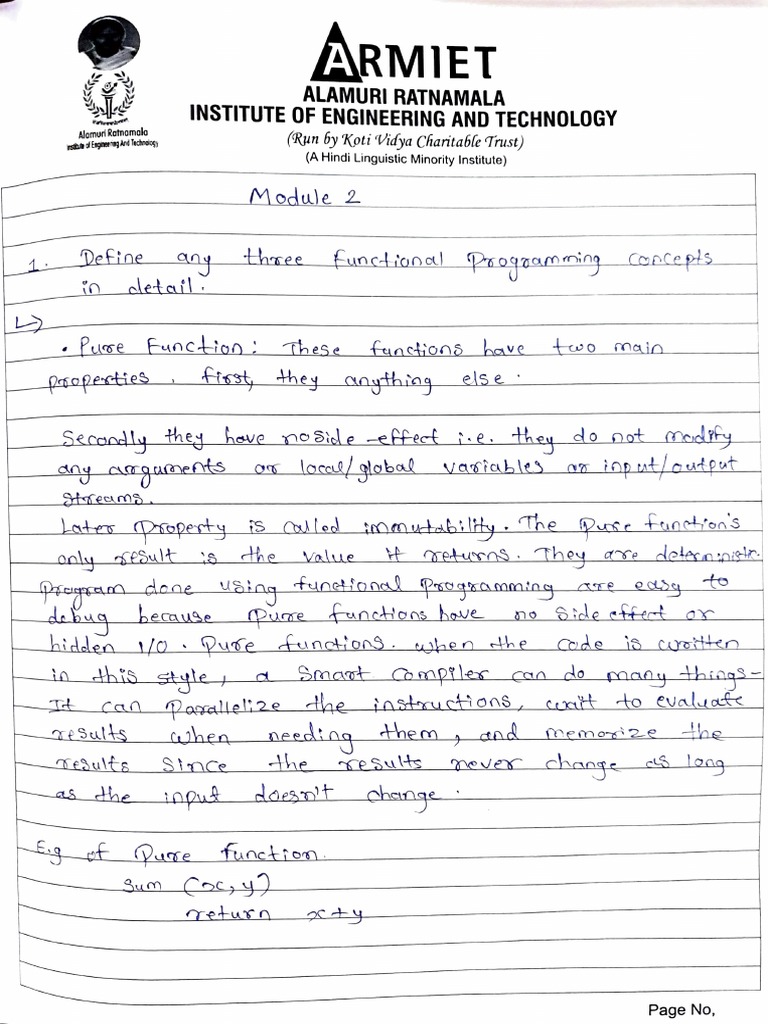 ARMIET
ALAMURI RATNAMALA
INSTITUTE OF ENGINEERING AND TECHNOLOGY
(Run by Koti Vidya Charitable Trust)
(A Hindi Linguistic Minority Institute)
Alamuri Ratnamala
Institute of Engineering And Technology
Module 2
1. Define any three functional Programming concepts
in detail.
↳
• Pure Function: These functions have two main
properties. first, they anything else.
Secondly they have no side-effect i.e. they do not modify
any arguments or local/global variables or input/output
streams.
Later Property is called immutability. The Pure function's
only result is the value it returns. They are deterministic.
Program done using functional Programming are easy to
debug because pure functions have no side effect or
hidden I/O. Pure functions. when the code is written
in this style, a smart compiler can do many things-
It can Parallelize the instructions, wait to evaluate
results when needing them, and memorize the
results since the results never change as long
as the input doesn't change.
E.g of Pure function.
sum (x, y)
return x+y
Page No,